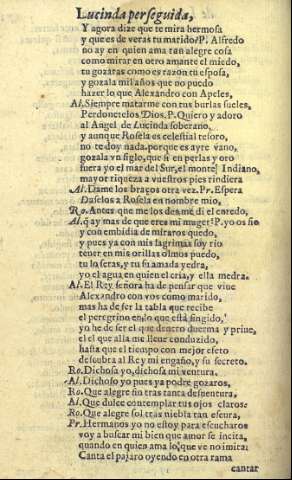 Lucinda perseguida,
Y agora dize que te mira hermosa
y que es de veras tu marido? P. Alfredo
no ay en quien ama tan alegre cosa
como mirar en otro amante el miedo,
tu gozaràs como es razon tu esposa,
y gozala mil años que no puedo
hazer lo que Alexandro con Apeles,
Al. Siempre matarme con tus burlas sueles,
Perdonetelos Dios. P. Quiero y adoro
al Angel de Lucinda soberano,
y aunque Rosela es celestial tesoro,
no te doy nada, porque es ayre vano,
gozala vn siglo, que si en perlas y oro
fuera yo el mar del Sur, el monte Indiano,
mayor riqueza a vuestros pies rindiera
Al. Dame los braços otra vez. Pr. Espera
Daselos a Rosela en nombre mio,
Ro. Antes que me los des me di el enredo,
Al. q̃ ay mas de que eres mi muger? P. yo os fio
y con embidia de miraros quedo,
y pues ya con mis lagrimas soy rio
tener en mis orillas olmos puedo,
tu lo seras, y tu su amada yedra,
yo el agua en quien el cria, y ella medra.
Al. El Rey señora ha de pensar que viue
Alexandro con vos como marido,
mas ha de ser la tabla que recibe
el peregrino en lo que està fingido,
yo he de ser el que dentro duerma y priue,
el el que alla me lleue conduzido,
hasta que el tiempo con mejor efeto
descubra al Rey mi engaño, y su secreto.
Ro. Dichosa yo, dichosa mi ventura.
Al. Dichoso yo pues ya podre gozaros,
Ro. Que alegre fin tras tanta desuentura,
Al. Que dulce contemplar tus ojos claros:
Ro. Que alegre sol tras niebla tan escura,
Pr. Hermanos yo no estoy para escucharos
voy a buscar mi bien que amor se incita,
quando en quien ama lo que ve no imita:
Canta el pajaro oyendo en otra rama
cantar